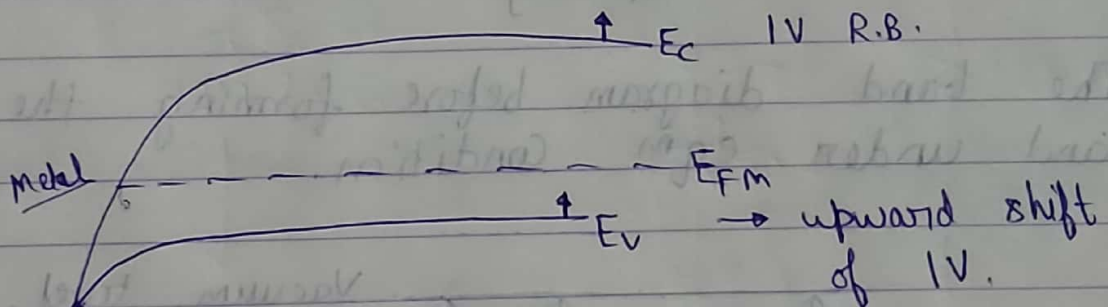 Ec 1V R.B.
Metal EFM
Ev → upward shift
of 1V.